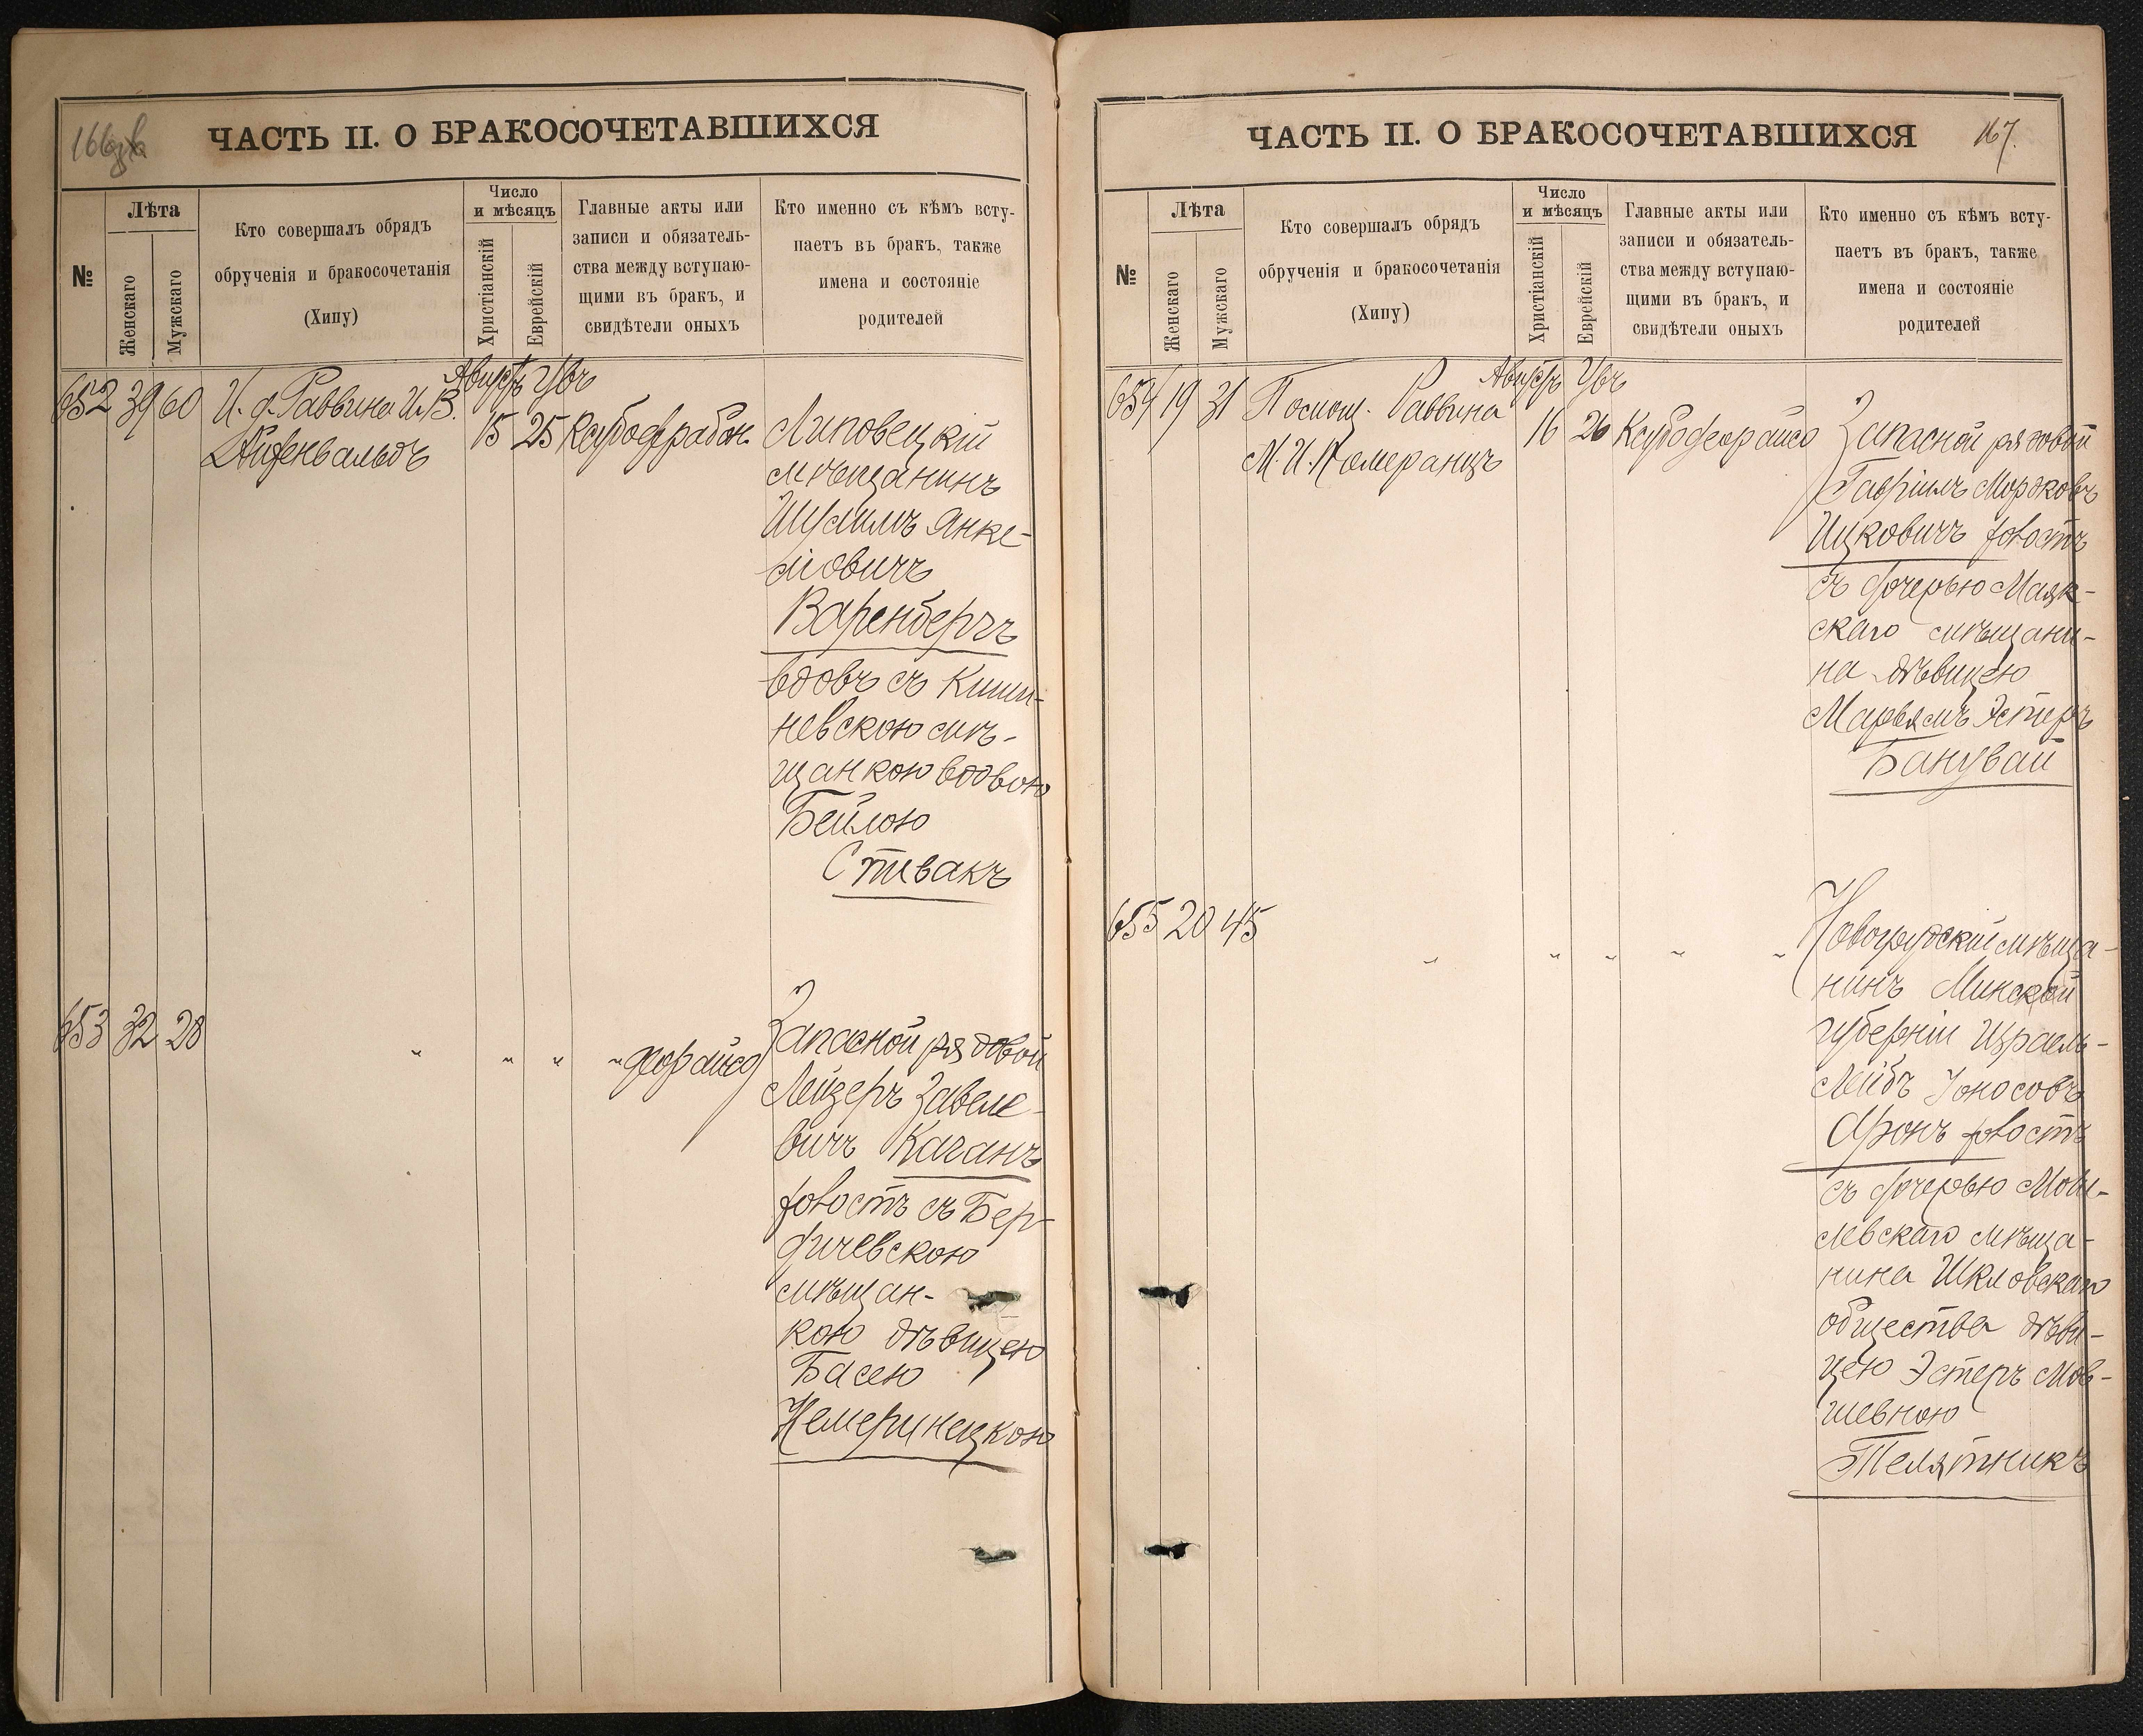 166
ЧАСТЬ II. О БРАКОСОЧЕТАВШИХСЯ
№
Лѣта
Женскаго
Мужскаго
Кто совершалъ обрядъ
обрученія и бракосочетанія
(Хипу)
Число
и мѣсяцъ
Христіанскій
Еврейскій
Главные акты или
записи и обязатель-
ства между вступаю-
щими въ бракъ, и
свидѣтели оныхъ
Кто именно съ кѣмъ всту-
паетъ въ бракъ, также
имена и состояніе
родителей
652 39 60 И. д. Раввина И. В.
Августъ
15 25
Липовецкій
мѣщанинъ
Шулимъ Янке-
левичъ
Варенбергъ
вдовъ съ Киши-
невскою мѣ-
щанкою вдовою
Бейлою
Спивакъ
653 32 28 " " " "
Запасной рядовой
Лейзеръ Завеле-
вичъ Каганъ
холостъ съ Бер-
дичевскою
мѣщан-
кою дѣвицею
Басею
Немеринецкою
ЧАСТЬ II. О БРАКОСОЧЕТАВШИХСЯ
167.
№
Лѣта
Женскаго
Мужскаго
Кто совершалъ обрядъ
обрученія и бракосочетанія
(Хипу)
Число
и мѣсяцъ
Христіанскій
Еврейскій
Главные акты или
записи и обязатель-
ства между вступаю-
щими въ бракъ, и
свидѣтели оныхъ
Кто именно съ кѣмъ всту-
паетъ въ бракъ, также
имена и состояніе
родителей
654 19 31 Помощ. Раввина
М. И. Померанцъ
Августъ
16 26
Запасной рядовой
Гавріилъ Мордковъ
Ицковичъ холостъ
съ дочерью Маяк-
скаго мѣщани-
на дѣвицею
Марьямъ Эстеръ
Банувай
655 20 45 " " " " "
Новогрудскій мѣща-
нинъ Минской
губерніи Израель-
Лейбъ Іоносовъ
Аронъ холостъ
съ дочерью Моги-
левскаго мѣща-
нина Шкловскаго
общества дѣви-
цею Эстеръ Мов-
шевною
Телятникъ